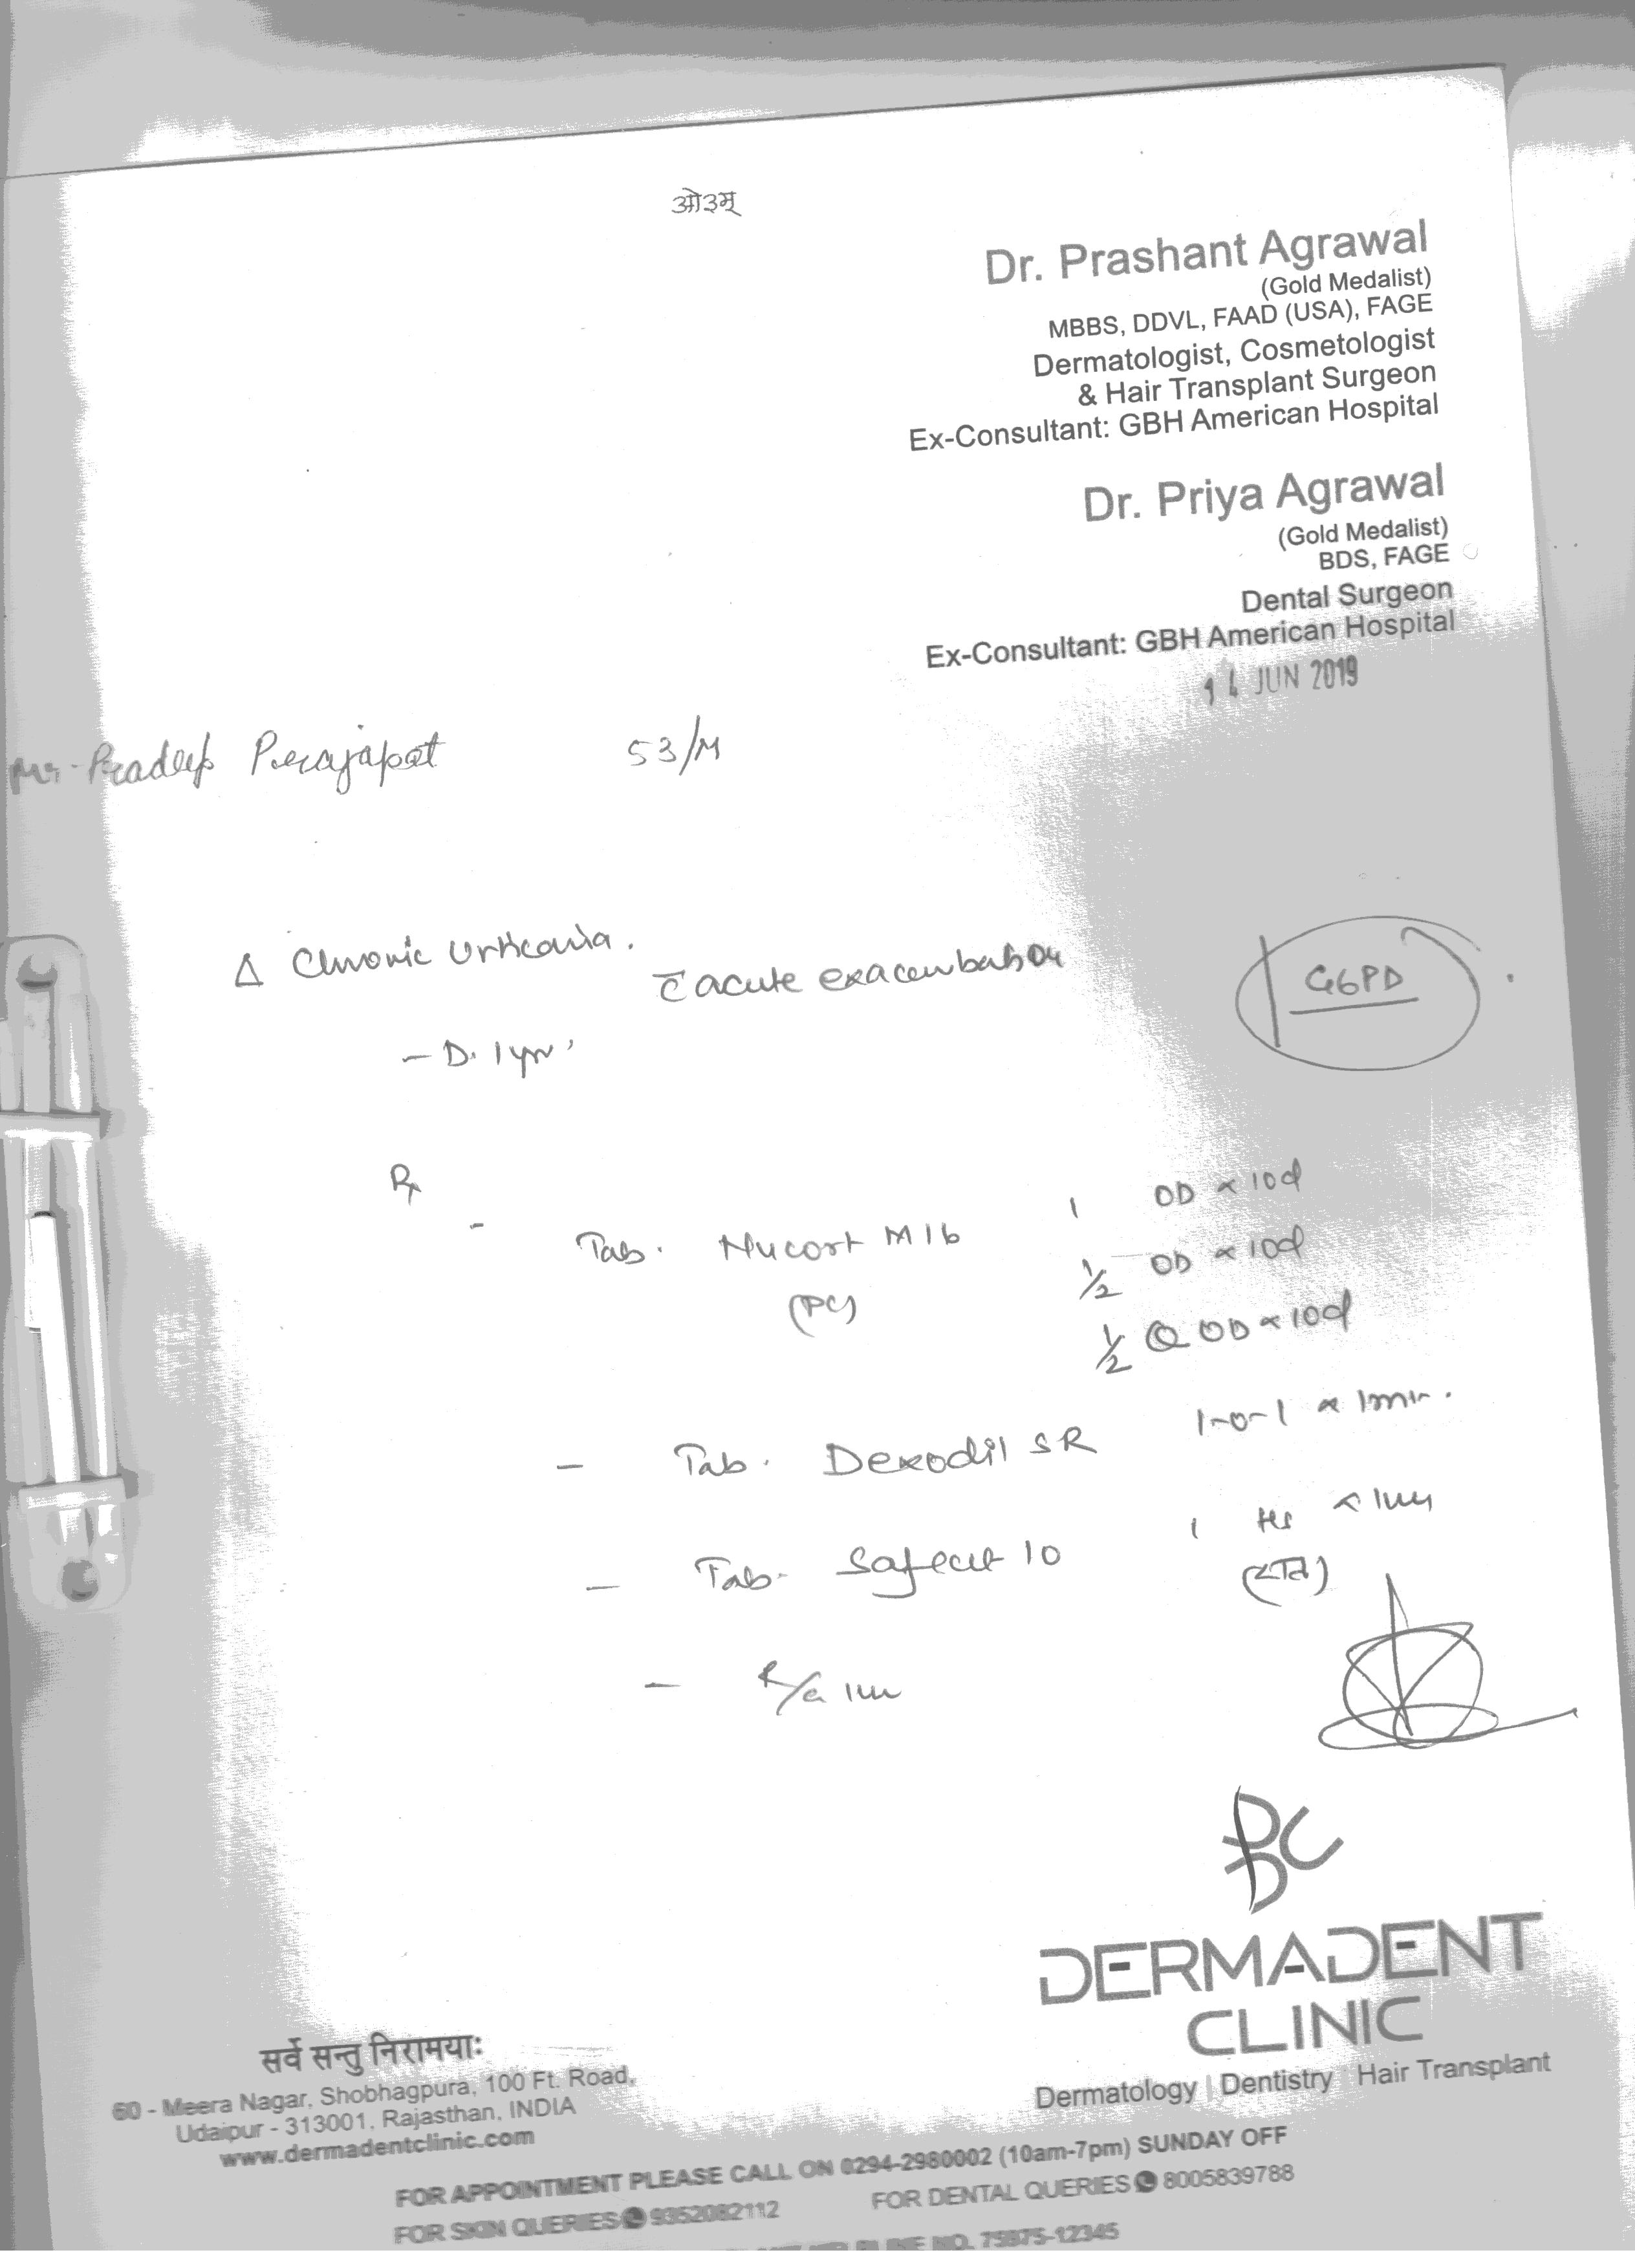 ओ३म्
Dr. Prashant Agrawal
(Gold Medalist)
MBBS, DDVL, FAAD (USA), FAGE
Dermatologist, Cosmetologist
& Hair Transplant Surgeon
Ex-Consultant: GBH American Hospital
Dr. Priya Agrawal
(Gold Medalist)
BDS, FAGE
Dental Surgeon
Ex-Consultant: GBH American Hospital
14 JUN 2019
Mr. Pradeep Prajapat 53/M
Δ Chronic Urticaria.
c̄ acute exacerbation
- D. 1 yr
G6PD
Rx
- Tab. Nucort M16 1 OD x 10d
(PC) 1/2 OD x 10d
1/2 OD x 10d
- Tab. Dexodil SR 1-0-1 x
- Tab. 10 1 HS x
- R/a
BC
DERMADENT
CLINIC
Dermatology | Dentistry | Hair Transplant
सर्वे सन्तु निरामयाः
60 - Meera Nagar, Shobhagpura, 100 Ft. Road,
Udaipur - 313001. Rajasthan, INDIA
www.dermadentclinic.com
FOR APPOINTMENT PLEASE CALL ON 0294-2980002 (10am-7pm) SUNDAY OFF
FOR SKIN QUERIES 9352082112 FOR DENTAL QUERIES 8005839788
NO. 75975-12345